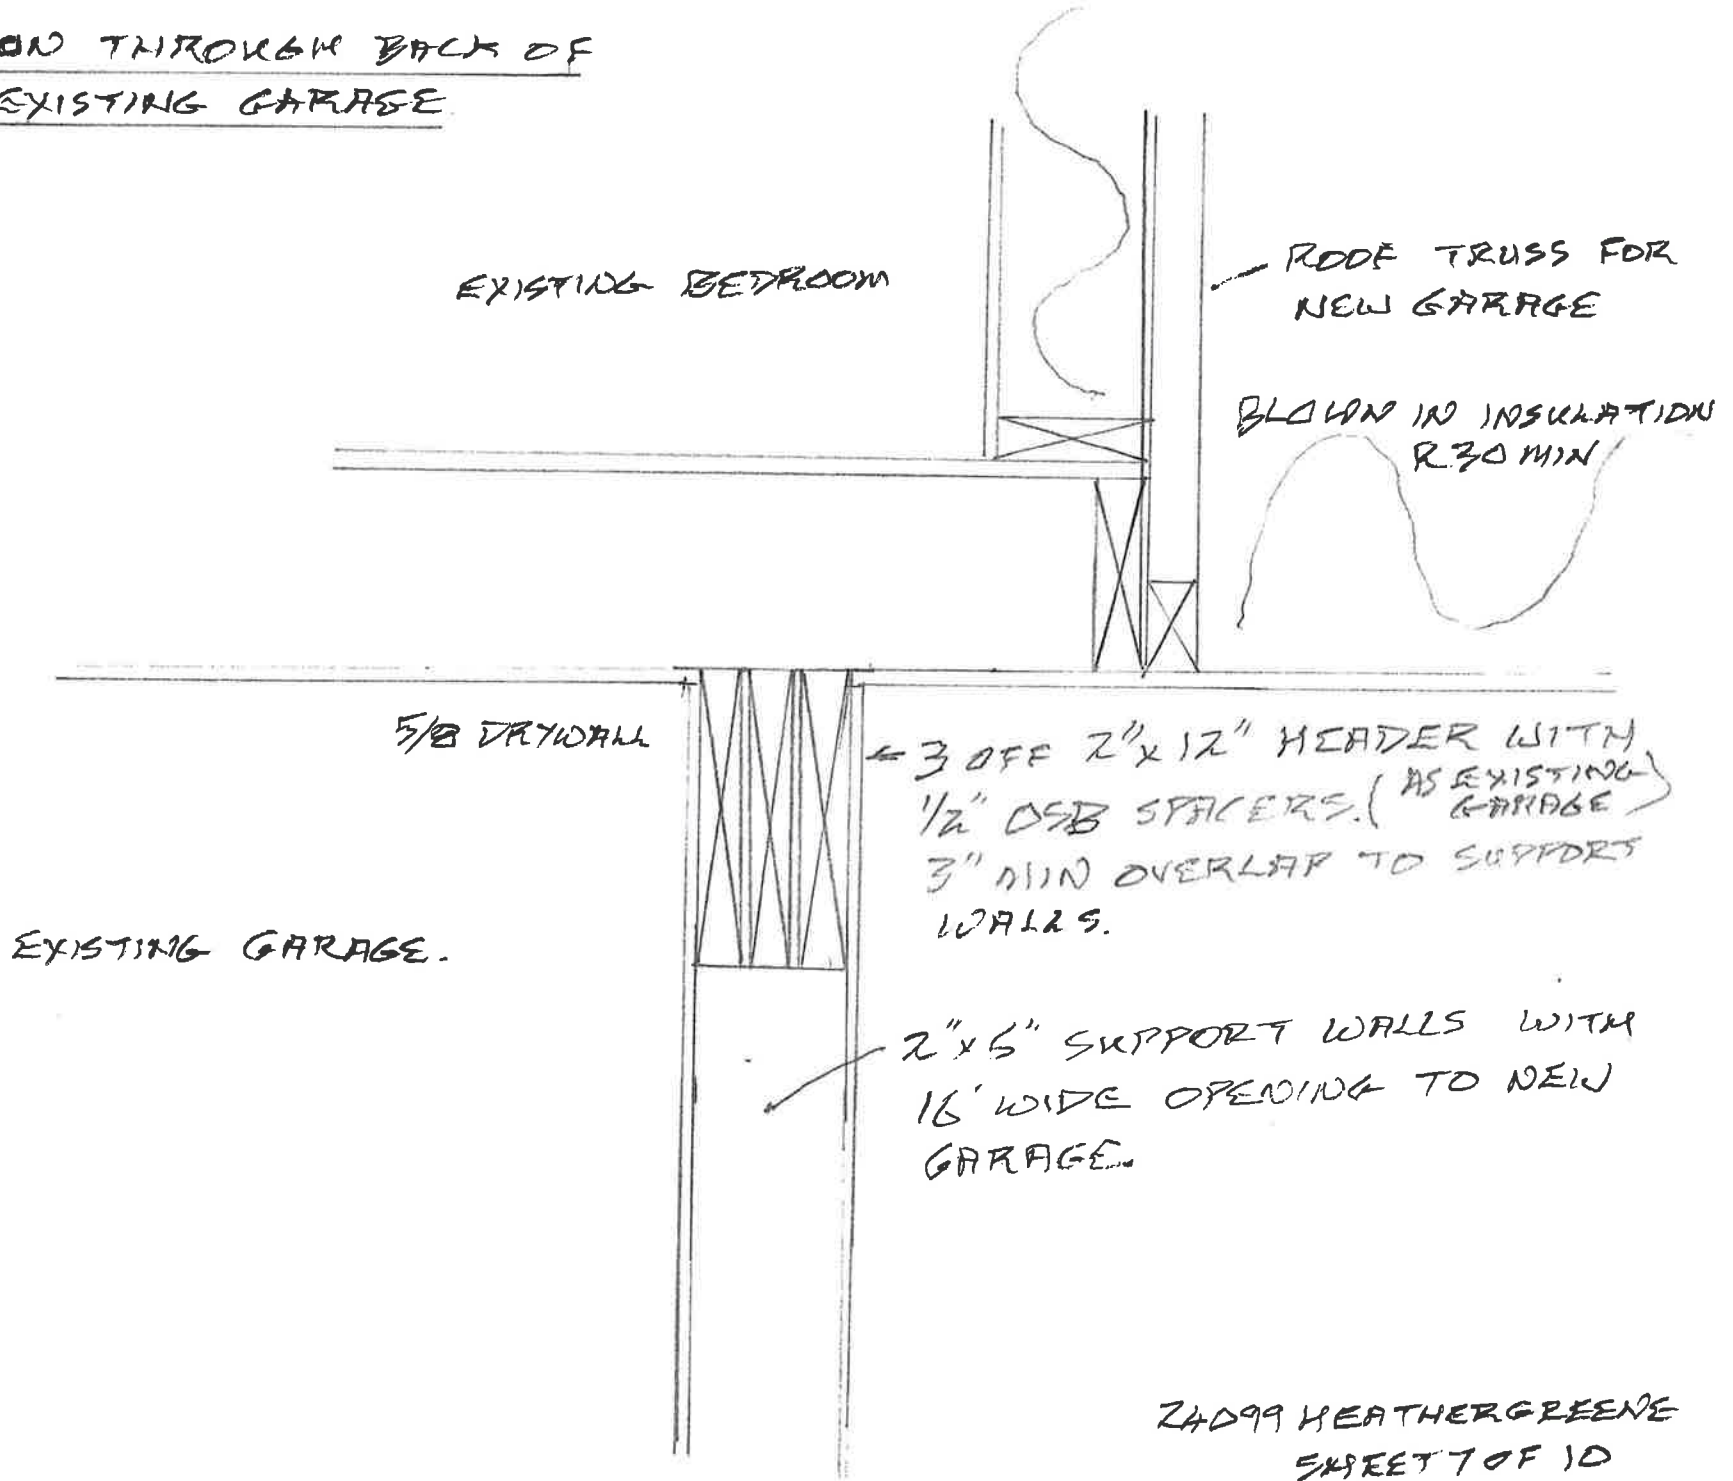 ON THROUGH BACK OF
EXISTING GARAGE
EXISTING BEDROOM
ROOF TRUSS FOR
NEW GARAGE
BLOWN IN INSULATION
R30 MIN
5/8 DRYWALL
3 OFF 2"x12" HEADER WITH
1/2" OSB SPACERS. (AS EXISTING
GARAGE)
3" MIN OVERLAP TO SUPPORT
WALLS.
EXISTING GARAGE.
2"x6" SUPPORT WALLS WITH
16' WIDE OPENING TO NEW
GARAGE.
24099 HEATHERGREENE
SHEET 7 OF 10